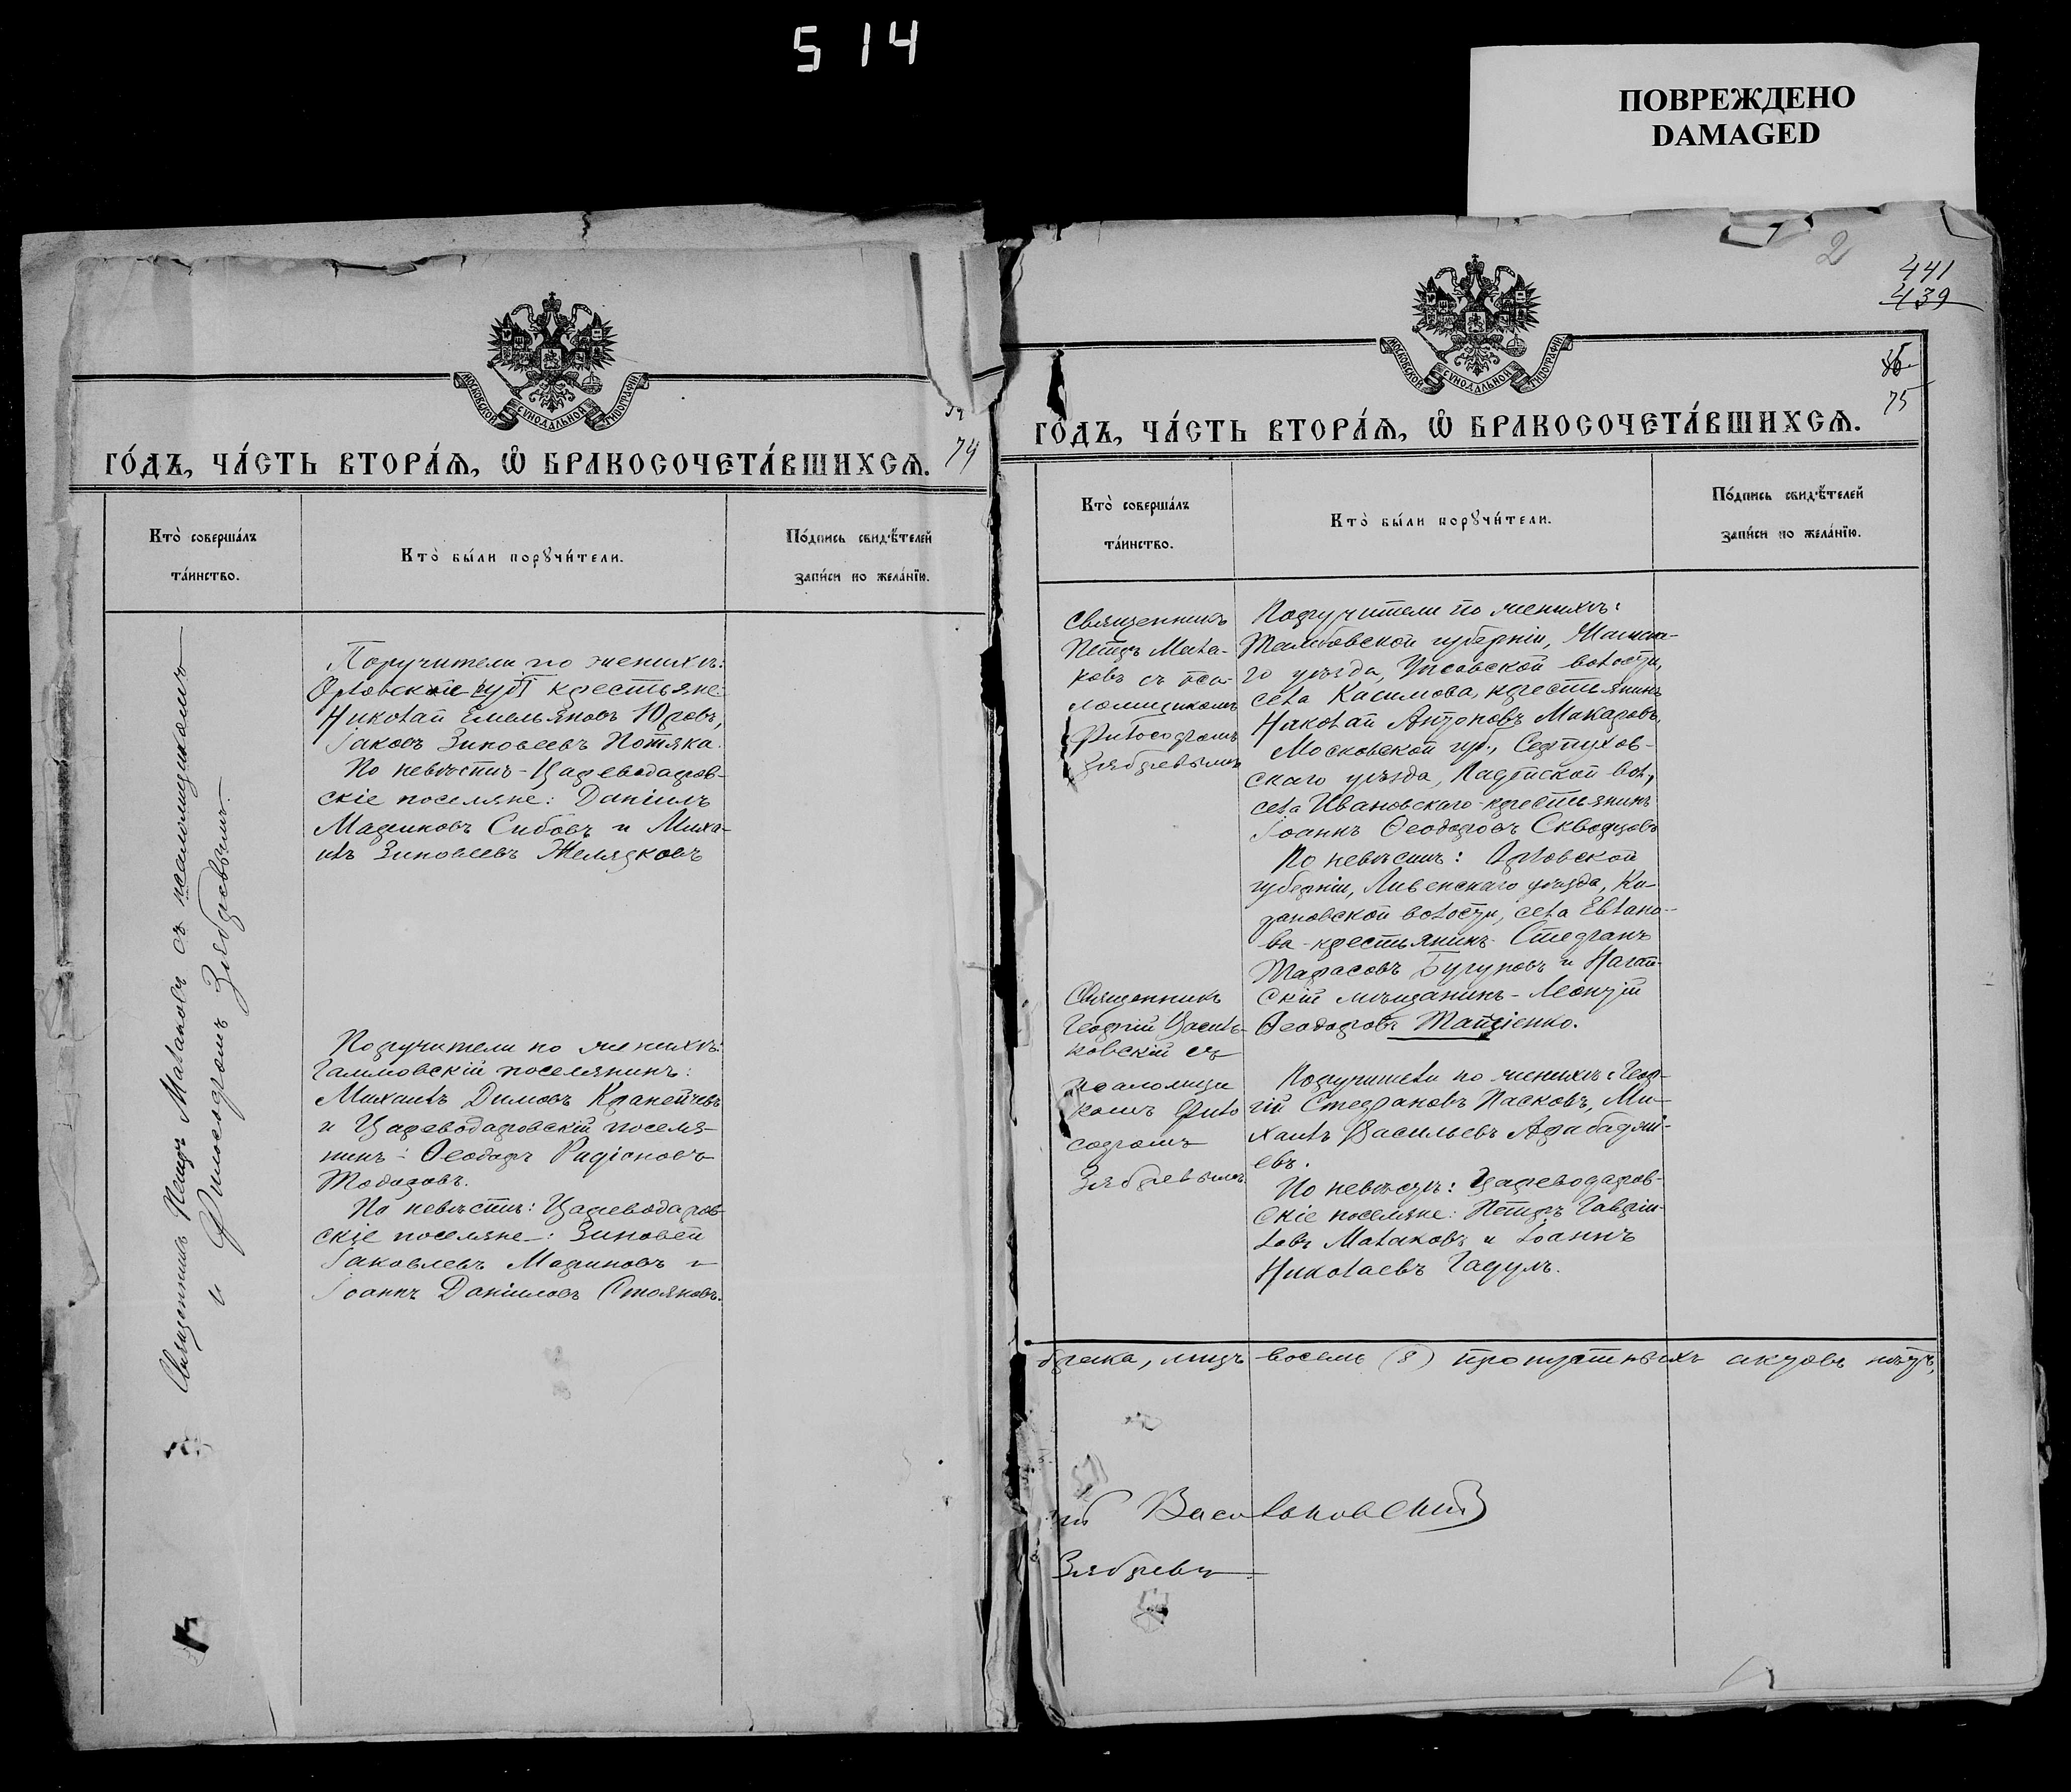 514
ПОВРЕЖДЕНО
DAMAGED
МОСКОВСКОЙ СѴНОДАЛЬНОЙ ТИПОГРАФІИ
74
ГО́ДЪ, ЧА́СТЬ ВТОРА́Ѧ, Ѽ БРАКОСОЧЕТА́ВШИХСѦ.
Кто̀ соверша́лъ
та́инство.
Кто̀ бы́ли порꙋчи́тели.
По́дпись свидѣ́телей
запи́си по жела́нїю.
Священникъ Петръ Малаковъ съ псаломщикомъ
и Филосоромъ Зябревымъ.
Поручители по женихѣ:
Орловской губ крестьяне:
Николай Емельяновъ Юровъ,
Іаковъ Зиновеевъ Потяка.
По невѣстѣ - Цареводаров-
скіе поселяне: Даніилъ
Мариновъ Сибовъ и Миха-
илъ Зиновеевъ Желясковъ
Поручители по женихѣ:
Галиловскій поселянинъ:
Михаилъ Димовъ Кранейчевъ
и Цареводаровскій поселя-
нинъ: Ѳеодоръ Радіоновъ
Тодоровъ.
По невѣстѣ: Цареводаров-
скіе поселяне: Зиновей
Іаковлевъ Мариновъ и
Іоаннъ Даніиловъ Стояновъ.
2
441
439
МОСКОВСКОЙ СѴНОДАЛЬНОЙ ТИПОГРАФІИ
75
ГО́ДЪ, ЧА́СТЬ ВТОРА́Ѧ, Ѽ БРАКОСОЧЕТА́ВШИХСѦ.
Кто̀ соверша́лъ
та́инство.
Кто̀ бы́ли порꙋчи́тели.
По́дпись свидѣ́телей
запи́си по жела́нїю.
Священникъ
Петръ Мала-
ковъ съ пса-
ломщикомъ
Филосоромъ
Зябревымъ
Поручители по женихѣ:
Тамбовской губерніи,
го уѣзда, волости,
села Касимова, крестьянинъ
Николай Антоновъ Макаровъ,
Московской губ., Серпухов-
скаго уѣзда, вол.,
села Ивановскаго крестьянинъ
Іоаннъ Ѳеодоровъ Скворцовъ
По невѣстѣ: Орловской
губерніи, Ливенскаго уѣзда, Ка-
зановской волости, села Евлано-
ва - крестьянинъ Стефанъ
Тарасовъ Бугуновъ и Ногай-
скій мѣщанинъ - Леонтій
Ѳеодоровъ Таисіенко.
Священникъ
Георгій Василь-
ковскій съ
псаломщи
комъ Фило
соромъ
Зябревымъ
Поручители по женихѣ: Геор-
гій Стефановъ Пасковъ, Ми-
хаилъ Васильевъ Арабаджі-
евъ.
По невѣстѣ: Цареводаров-
скіе поселяне: Петръ Гаврии-
ловъ Малаковъ и Іоаннъ
Николаевъ Гагулъ.
брака, лицъ восемь (8) пропустныхъ актовъ нѣтъ,
Васильковскій
Зябревъ